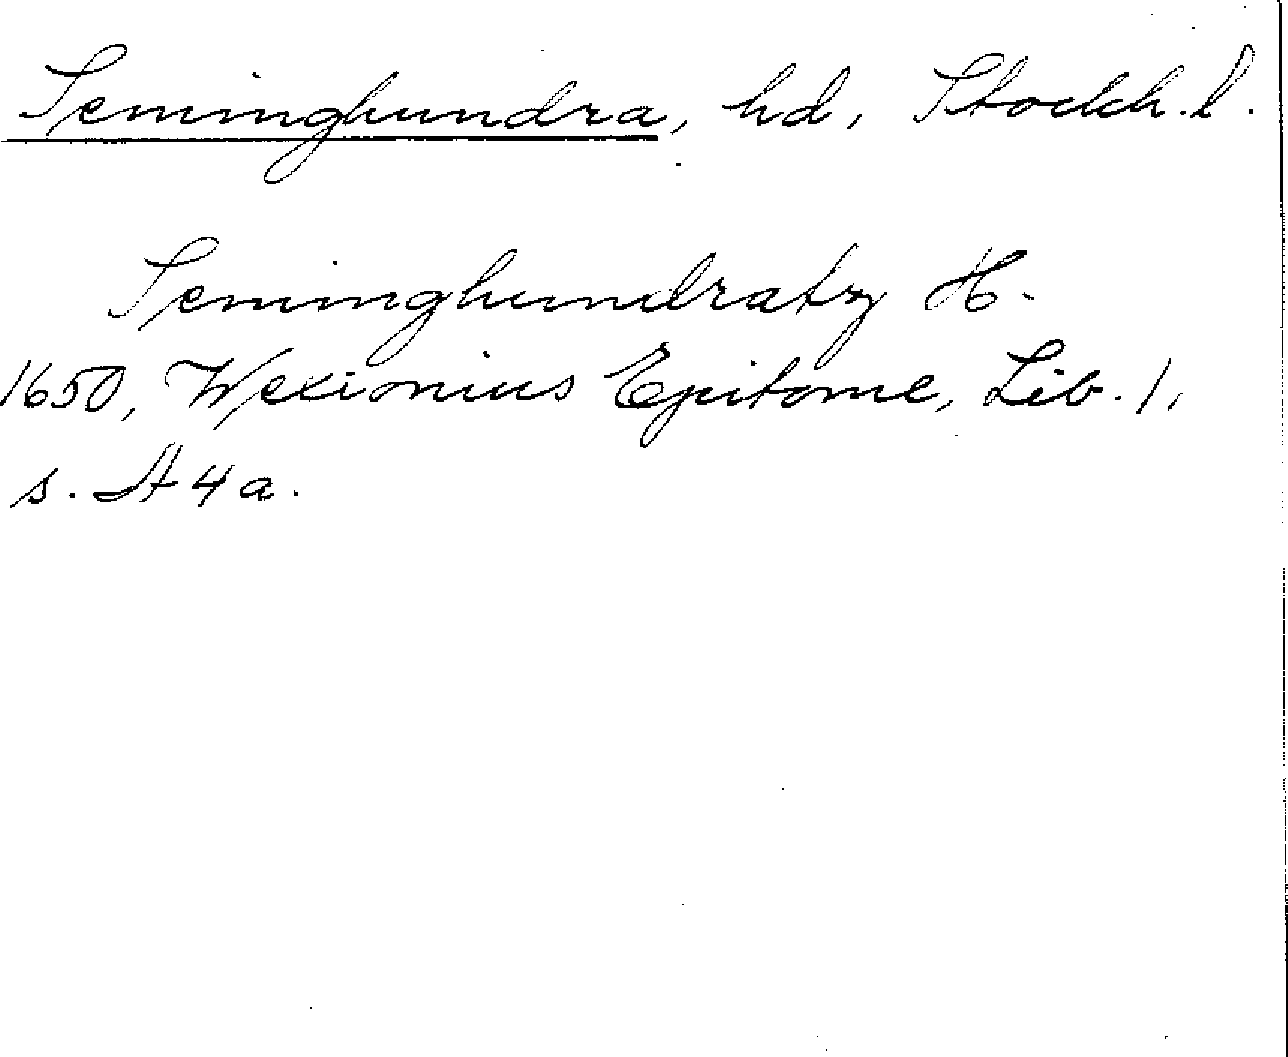 Seminghundra, hd, Stockh. l.
Seminghundratz H.
1650, Wexionius Epitome, Lib. 1,
s. A 4 a.